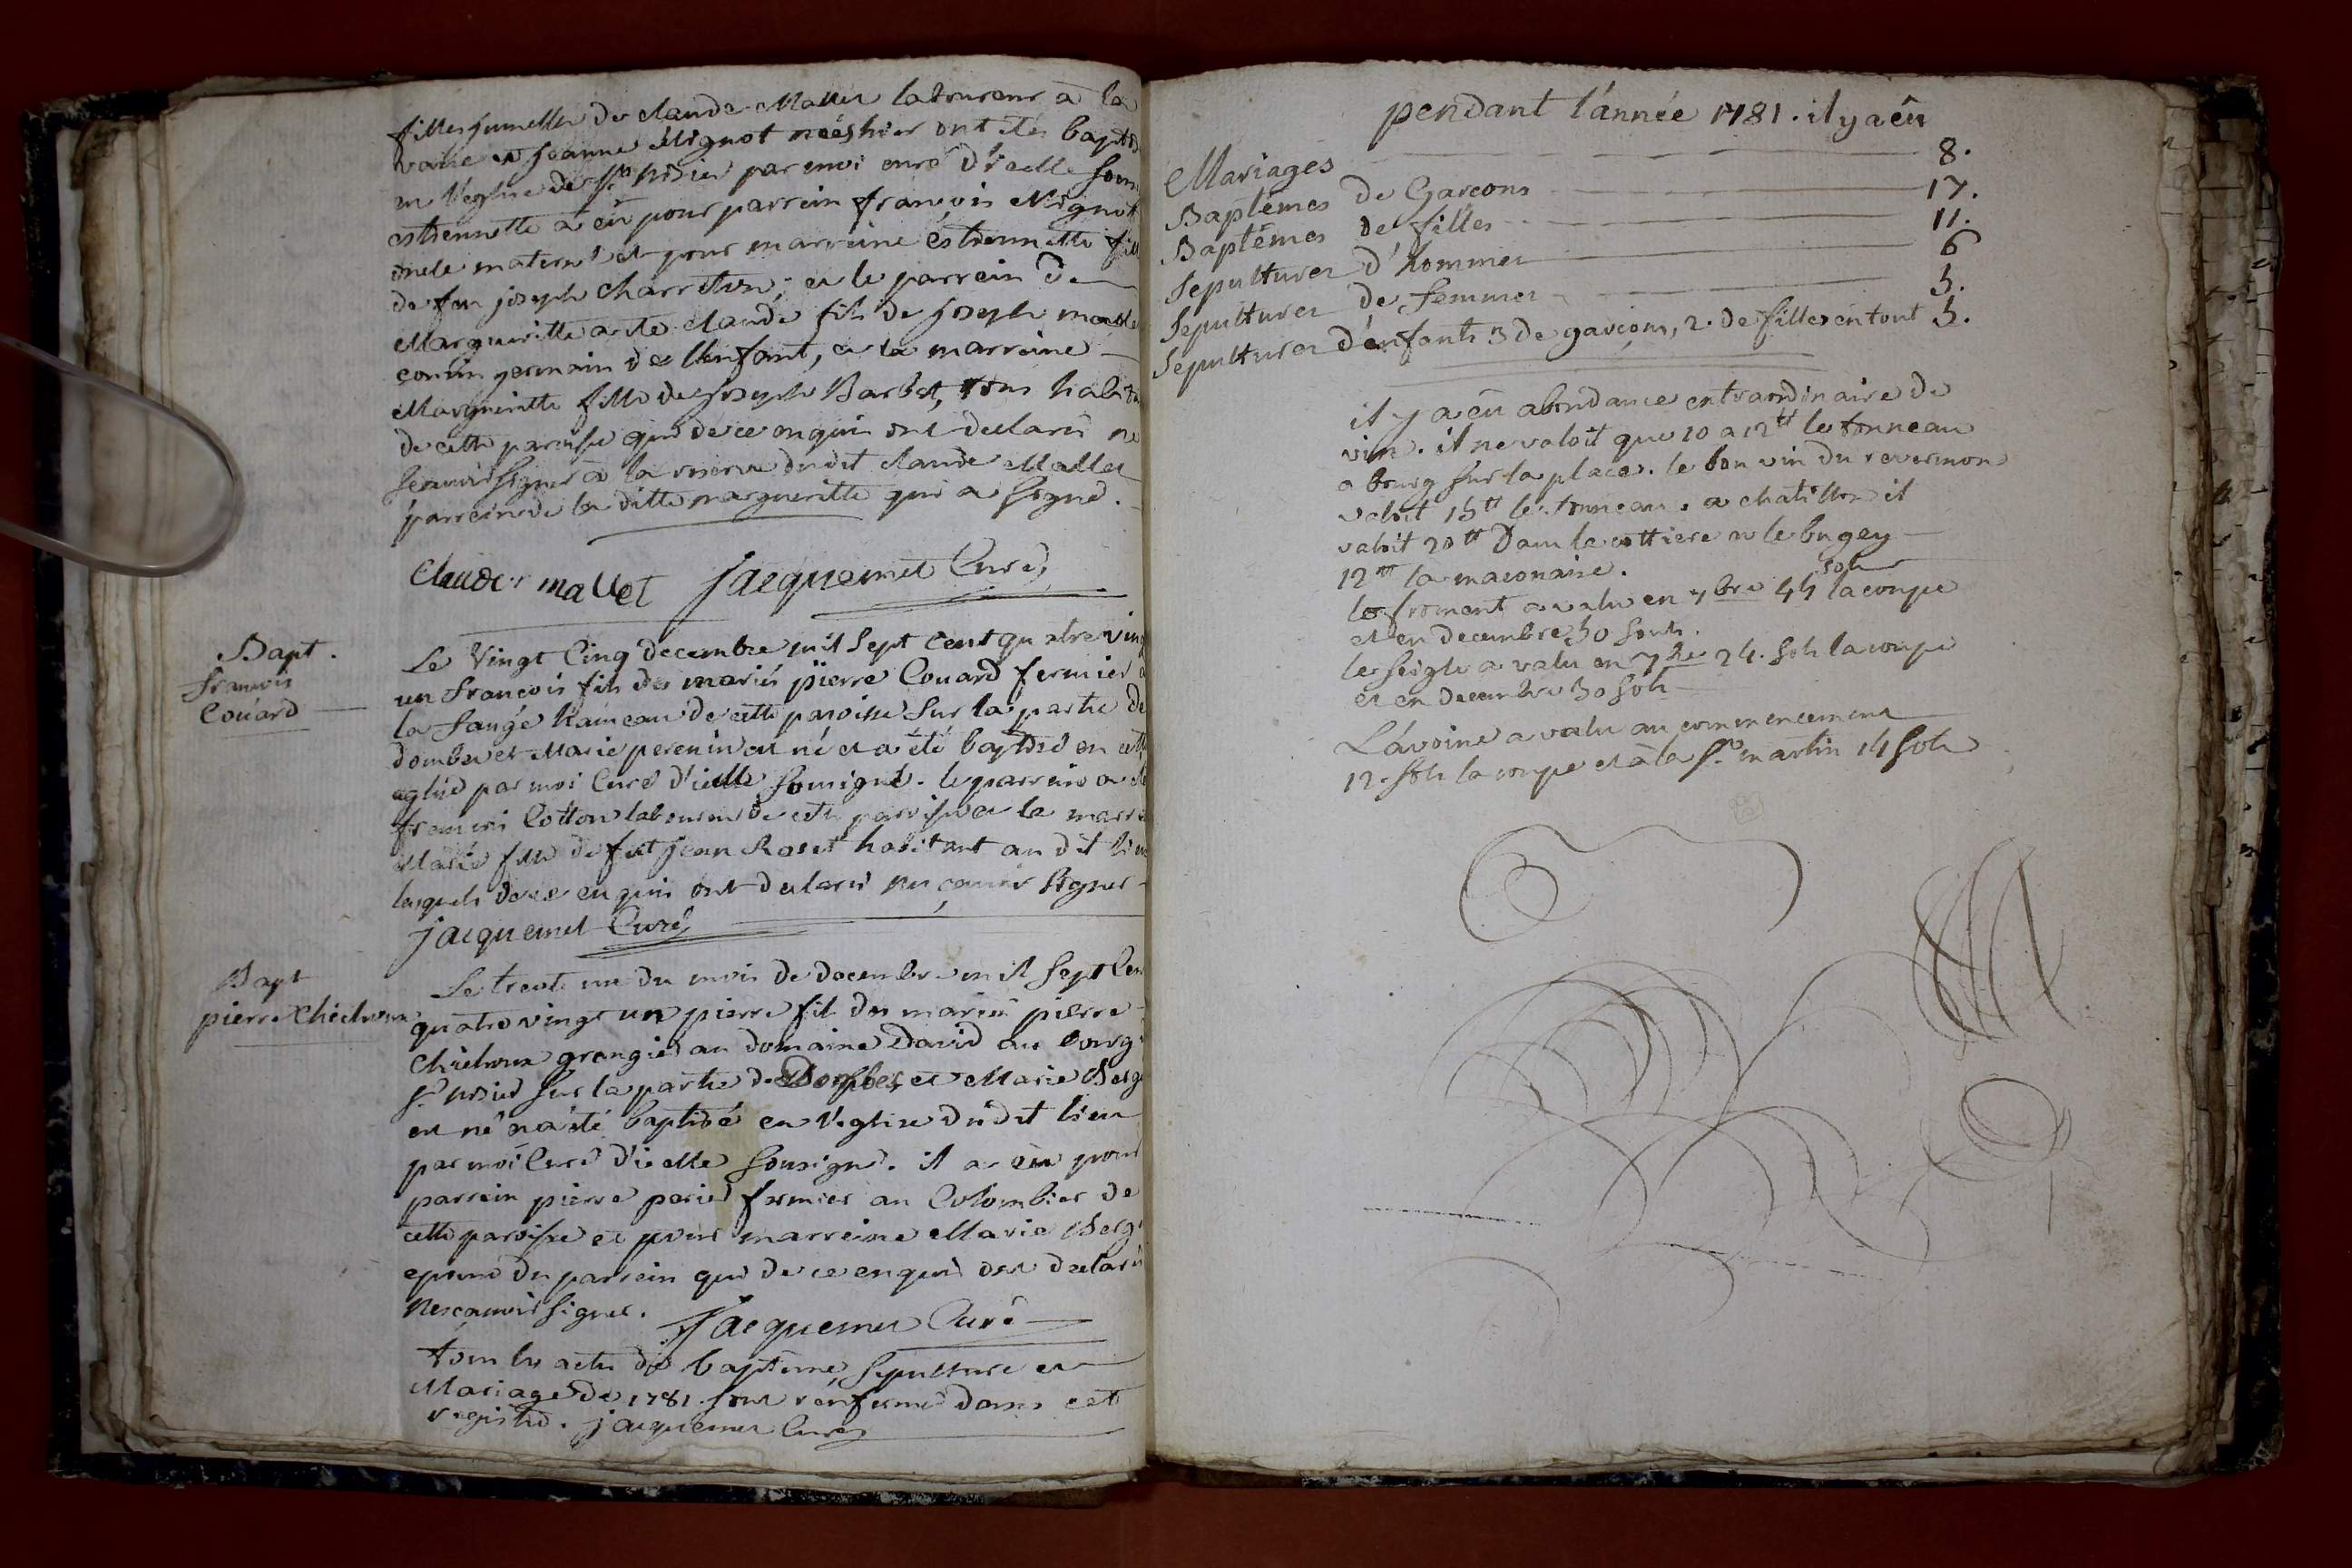 filles jumelles de claude Mallet laboureur à la
et jeanne Mignot nées hier ont étés baptis
en l'eglise de St nisier par moi curé d'icelle sous
estiennette a eû pour parrein françois Mignot
oncle maternel et pour marreine estiennette fill
de feu joseph charreton; et le parrein de
Margueritte a été claude fils de joseph
cousin germain de l'enfant, et la marreine
Margueritte fille de joseph Barbet, tous habit
de cette paroisse qui de ce enquis ont declaré ne
scavoir signer à la reserve dudit claude Mallet
parrein de la ditte margueritte qui a signé.
Claude mallet jacquemet Curé
Bapt.
françois
Coüard
Le Vingt Cinq decembre mil Sept Cent quatre ving
un françois fils des mariés pierre Couard fermier a
la fange hameau de cette paroisse Sur la partie de
dombes et Marie perenin est né et a été baptisé en cette
eglise par moi Curé d'icelle Sousigné. le parrein a été
françois Cotton laboureur de cette paroisse et la marre
Marie fille de feu jean Roset habitant au dit lieu
lesquels de ce enquis ont declaré ne sçavoir signer
jacquemet Curé
Bapt
pierre Chichoux
Le trente un du mois de decembre mil Sept Cen
quatre vingt un pierre fils des mariés pierre
Chichoux grangier au domaine David au bourg
St nisier sur la partie de Dombes, et Marie Berg
est né et a été baptisé en l'eglise dudit lieu
par moi Curé d'icelle Sousigné. il a eu pour
parrein pierre perier fermier au Colombier de
cette paroisse et pour marreine Marie Berg
epouse du parrein qui de ce enquis ont declaré
ne sçavoir signer. Jacquemet Curé
tous les actes de baptême, Sepulture et
Mariage de 1781. sont renfermé dans cet
registre. jacquemet Curé
pendant l'année 1781. il y a eû
Mariages 8.
Baptêmes de Garcons 17.
Baptêmes de filles 11.
Sepultures d'hommes 6
Sepultures de femmes 5.
Sepultures d'enfants 3 de garçons, 2. de filles en tout 5.
il y a eû abondance extraordinaire de
vin. il ne valoit que 10 a 12tt le tonneau
a bourg sur la place. le bon vin du revermont
valoit 15tt le tonneau. a chatillon il
valoit 20tt Dans la cottiere et le bugey
12tt la maconaise.
le froment a valu en 7bre 45 sols la coupe
et en decembre 50 sous.
le seigle a valu en 7bre 24. sols la coupe
et en decembre 30 sols
L'avoine a valu au commencement
12. sols la coupe et à la St martin 14 sols